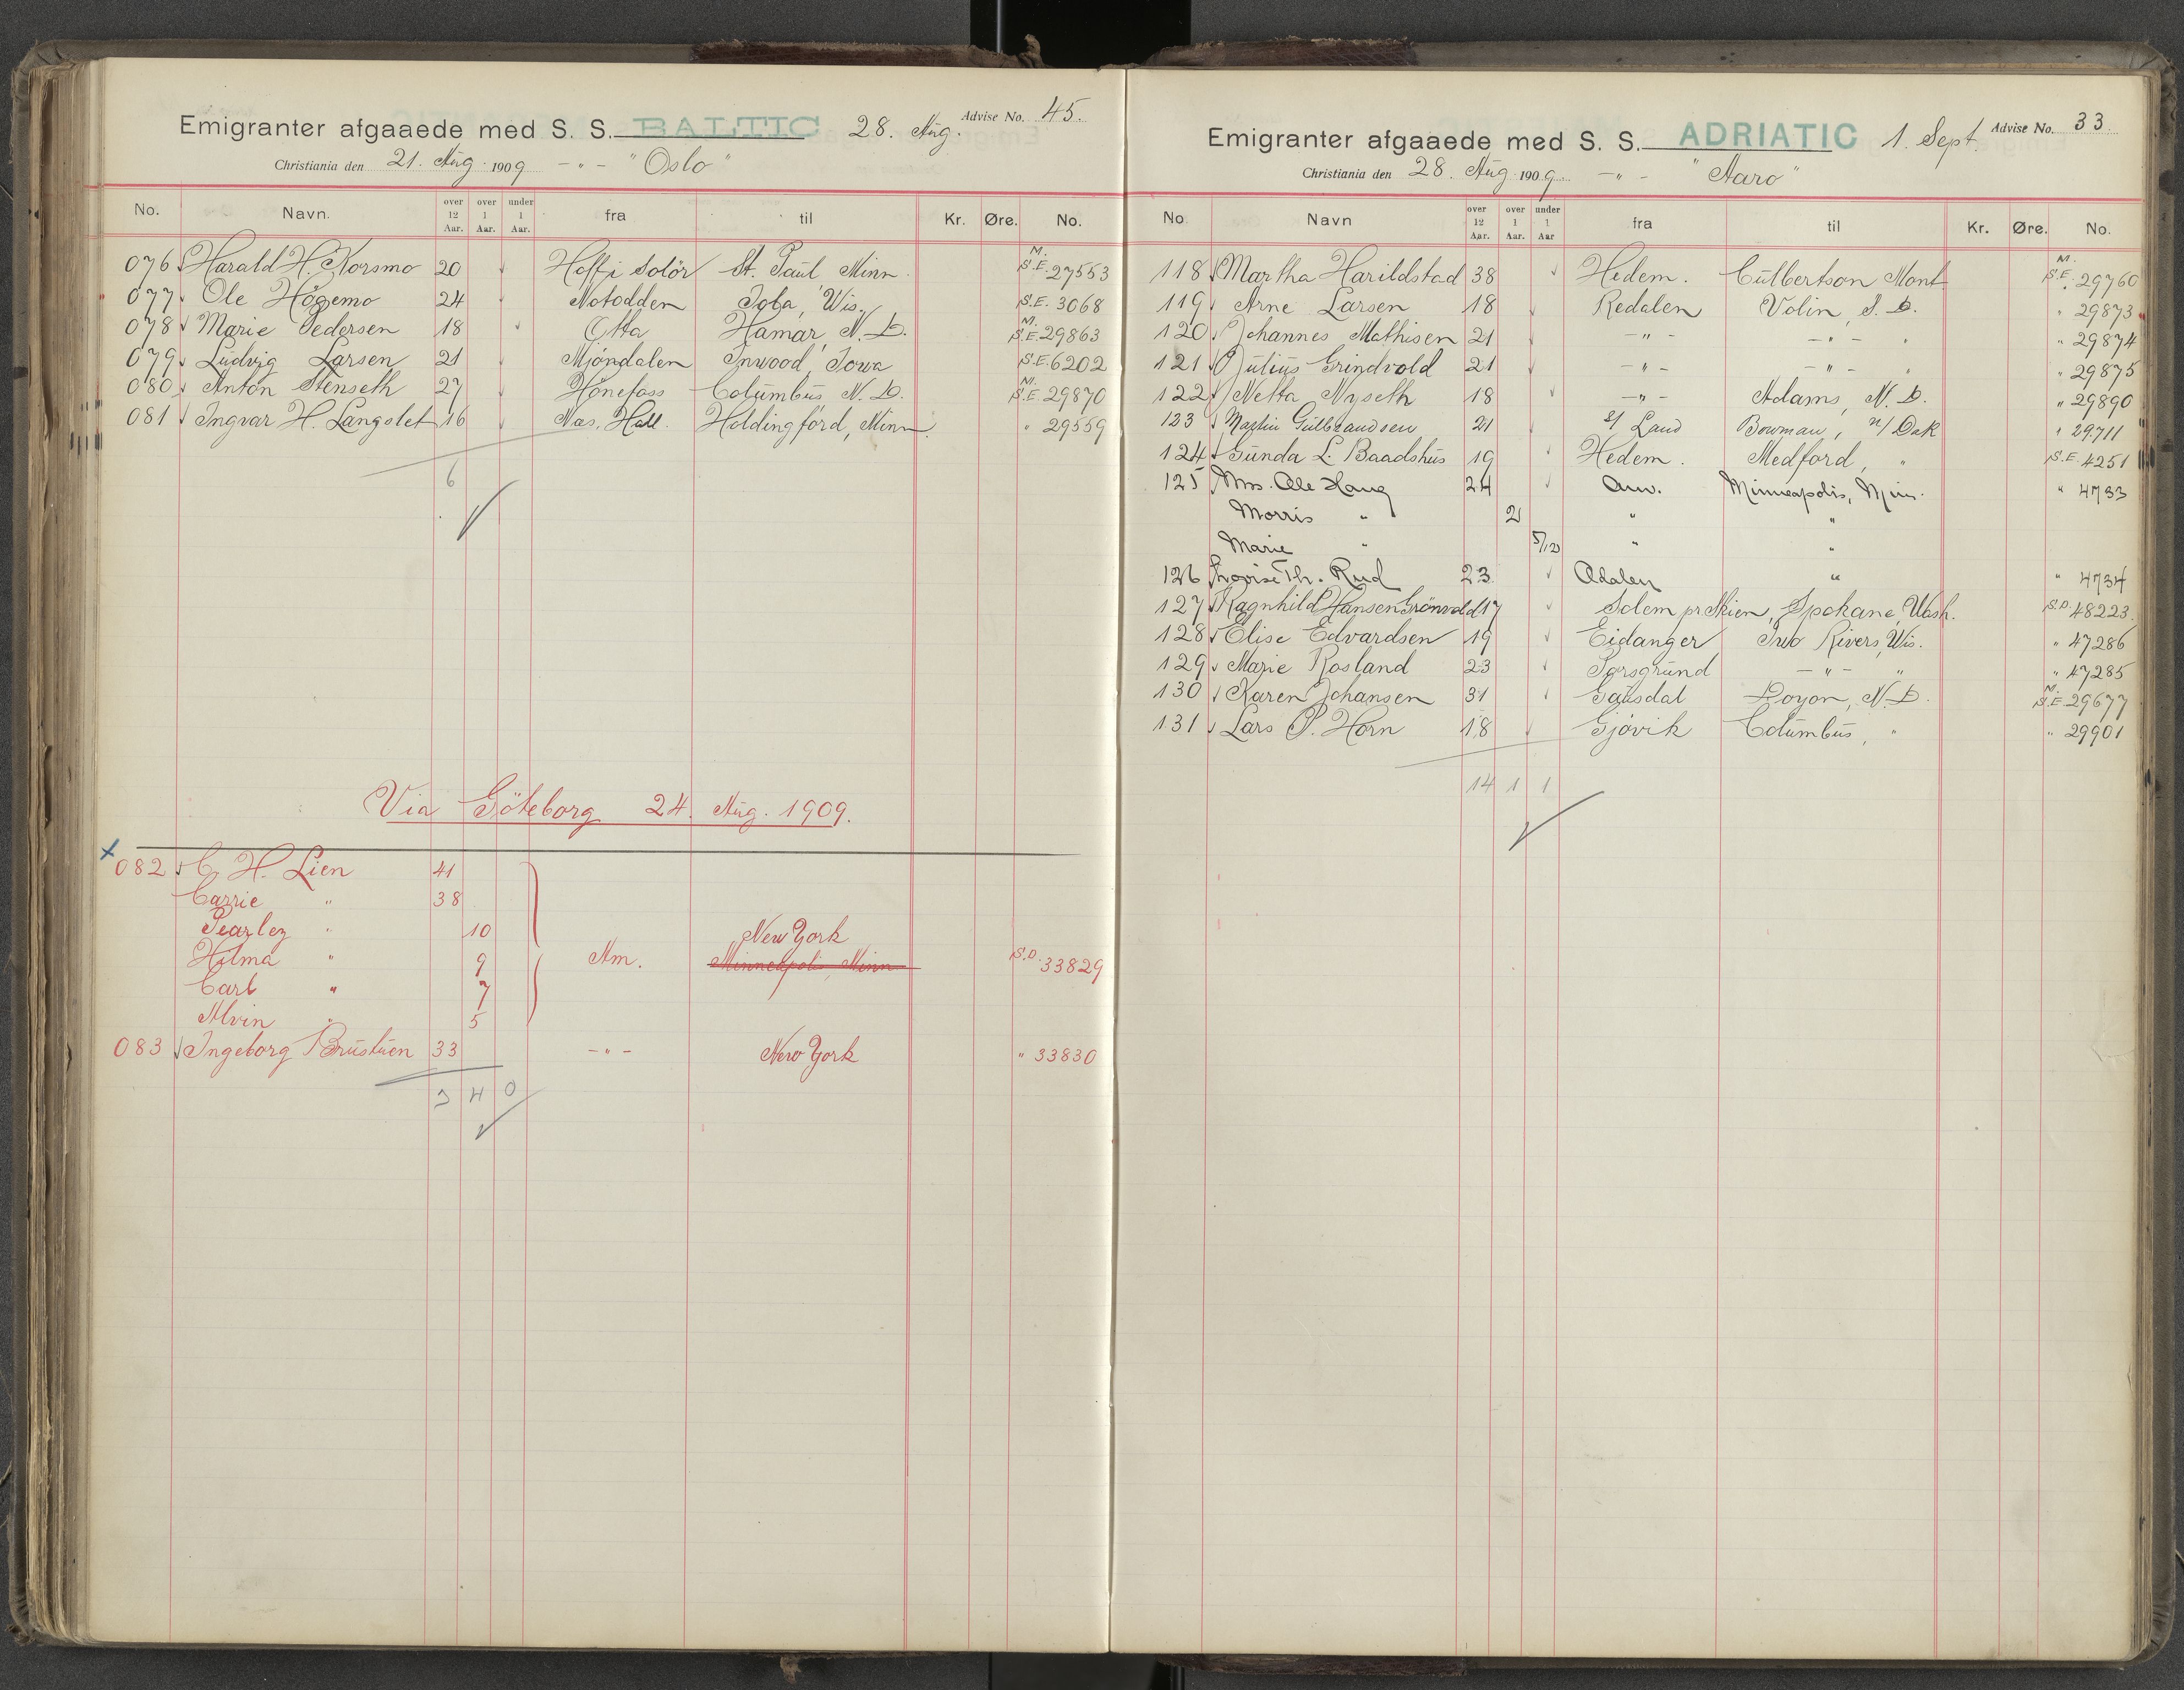 Emigranter afgaaede med S. S. BALTIC 28. Aug. Advise No. 45.
Christiania den 21. Aug. 1909 -"- "Oslo"
No. Navn. over 12 Aar. over 1 Aar. under 1 Aar. fra til Kr. Øre. No.
076 Harald H. Korsmo 20 Hof i Solör St. Paul Minn. M. S.E. 27553
077 Ole Högemo 24 Notodden Iola, Wis. S.E. 3068
078 Marie Pedersen 18 Otta Hamar, N. D. M. S.E. 29863
079 Ludvig Larsen 21 Mjöndalen Inwood, Iowa S.E. 6202
080 Anton Stenseth 27 Hönefoss Columbus N. D. M. S.E. 29870
081 Ingvar H. Langslet 16 Nas, Hall. Holdingford, Minn. " 29559
6
Via Göteborg 24. Aug. 1909.
082 C. H. Lien 41
Carrie " 38
Pearley " 10 New York
Hilma " 9 Am. Minneapolis, Minn S.D. 33829
Carl " 7
Alvin " 5
083 Ingeborg Brustuen 33 -"- New York " 33830
3 4 0
Emigranter afgaaede med S. S. ADRIATIC 1. Sept. Advise No. 33.
Christiania den 28. Aug. 1909. -"- "Aaro"
No. Navn over 12 Aar. over 1 Aar. under 1 Aar fra til Kr. Øre. No.
118 Martha Harildstad 38 Hedem. Culbertson Mont M. S.E. 29760
119 Arne Larsen 18 Redalen Volin, S. D. " 29873
120 Johannes Mathisen 21 -"- -"- " " 29874
121 Julius Grindvold 21 -"- -"- " " 29875
122 Netta Nyseth 18 -"- Adams, N. D. " 29890
123 Martin Gulbrandsen 21 S/ Land Bowman, N/ Dak " 29711
124 Gunda L. Baadshus 19 Hedem. Medford, " S.E. 4251
125 Mrs. Ole Haug 24 Am. Minneapolis, Minn. " 4733
Morris " 2 " "
Marie " 5/12 " "
126 Lovise Th. Rud 23 Adalen " " 4734
127 Ragnhild Hansen Grönvold 17 Solem pr Skien, Spokane, Wash. S.D. 48223
128 Elise Edvardsen 19 Eidanger Two Rivers, Wis. " 47286
129 Marie Rosland 23 Porsgrund -"- " " 47285
130 Karen Johansen 31 Gausdal Doyon, N. D. M. S.E. 29677
131 Lars P. Horn 18 Gjövik Columbus, " " 29901
14 1 1